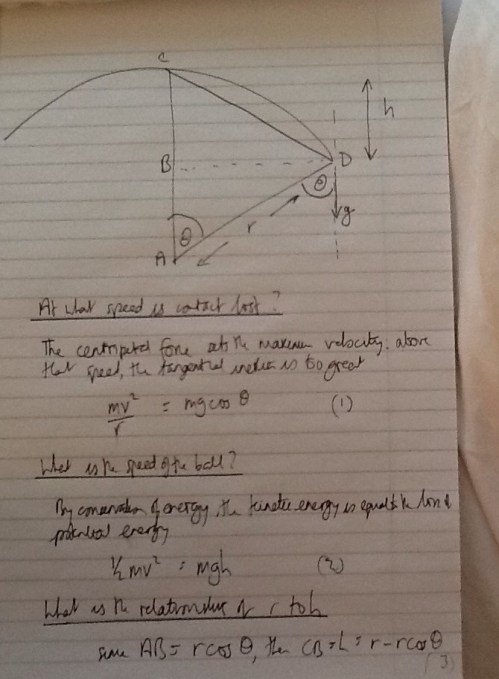 C
h
B
D
θ
g
r
θ
A
At what speed is contact lost?
The centripetal force sets the maximum velocity: above
that speed, the tangential inertia is too great
mv²/r = mg cos θ (1)
What is the speed of the ball?
By conservation of energy, the kinetic energy is equal to the loss of
potential energy
½mv² = mgh (2)
What is the relationship of r to h
since AB = r cos θ, then CB = h = r - r cos θ
(3)